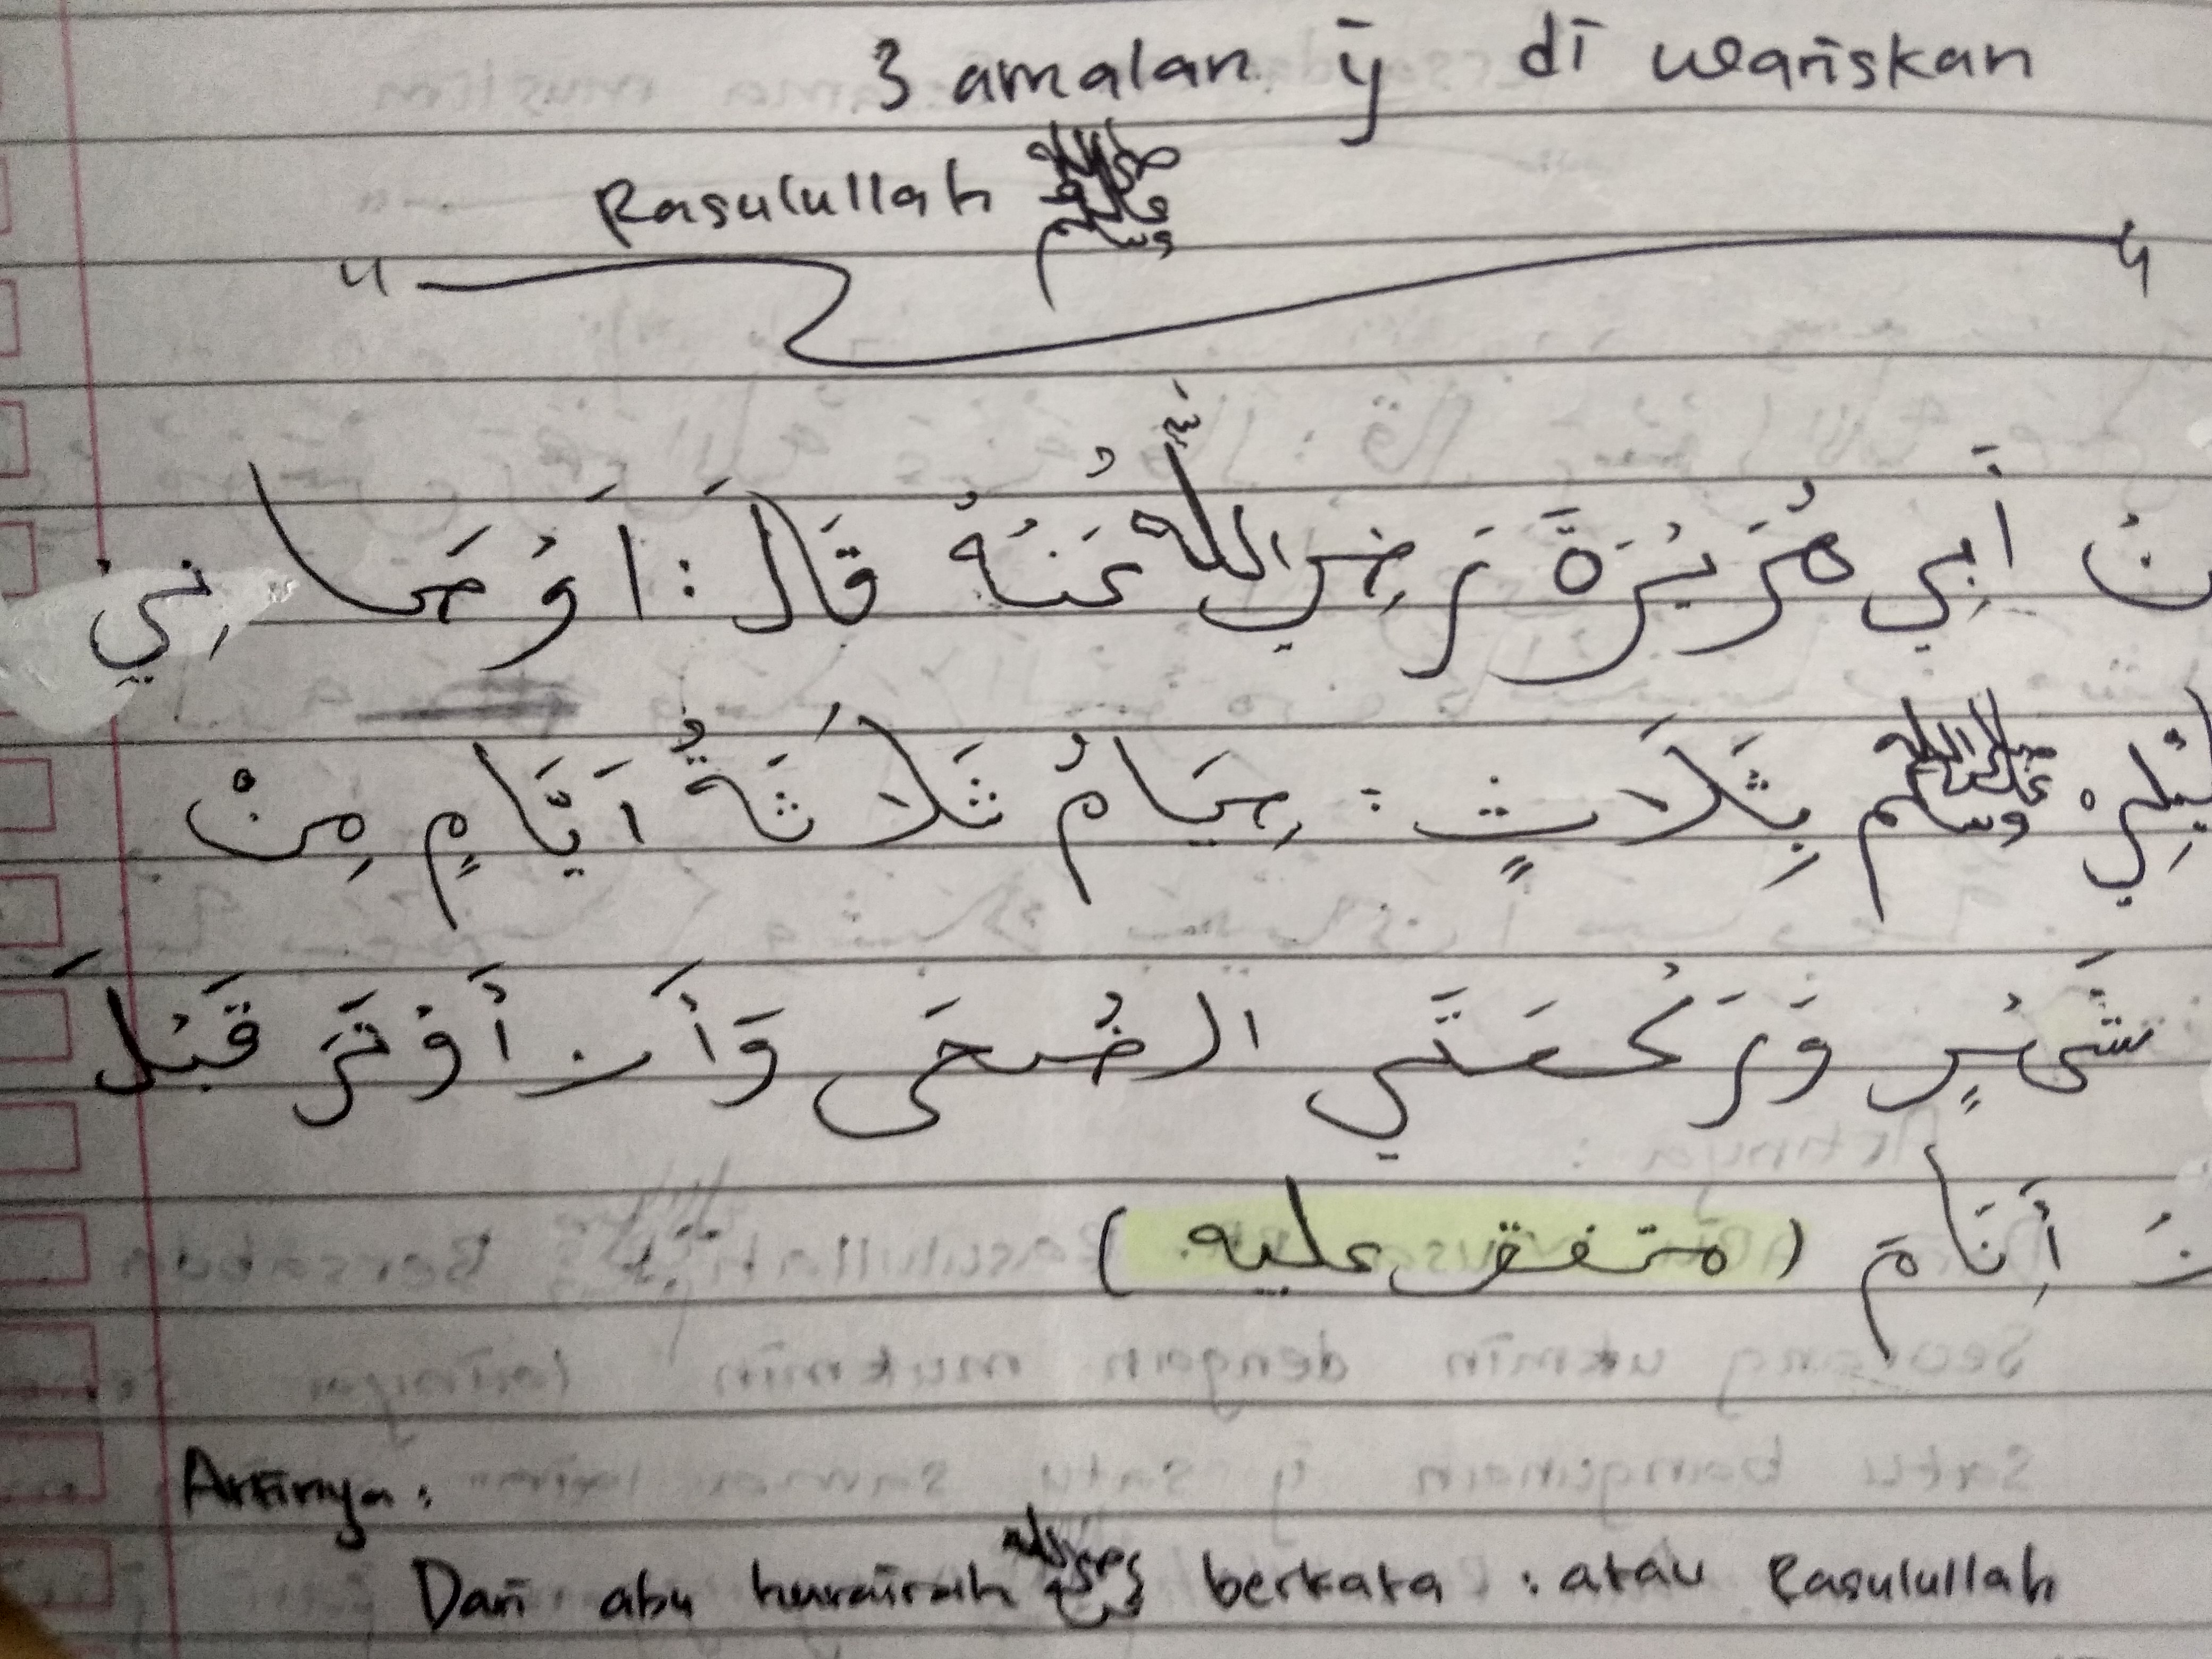 3 amalan ÿ di wariskan
Rasulullah ﷺ
نْ أَبِي هُرَيْرَةَ رَضِيَ اللّٰهُ عَنْهُ قَالَ : اَوْصَانِيْ
ﷺ بِثَلَاثٍ : صِيَامُ ثَلَاثَةُ اَيَّامٍ مِنْ
شَىْرٍ وَرَكُعَتَي الضُحَى وَأَن أُوْتَرَ قَبْلَ
نَ أَنَامَ (متفق عليه)
Artinya :
Dari abu hurairah berkata : atau Rasulullah